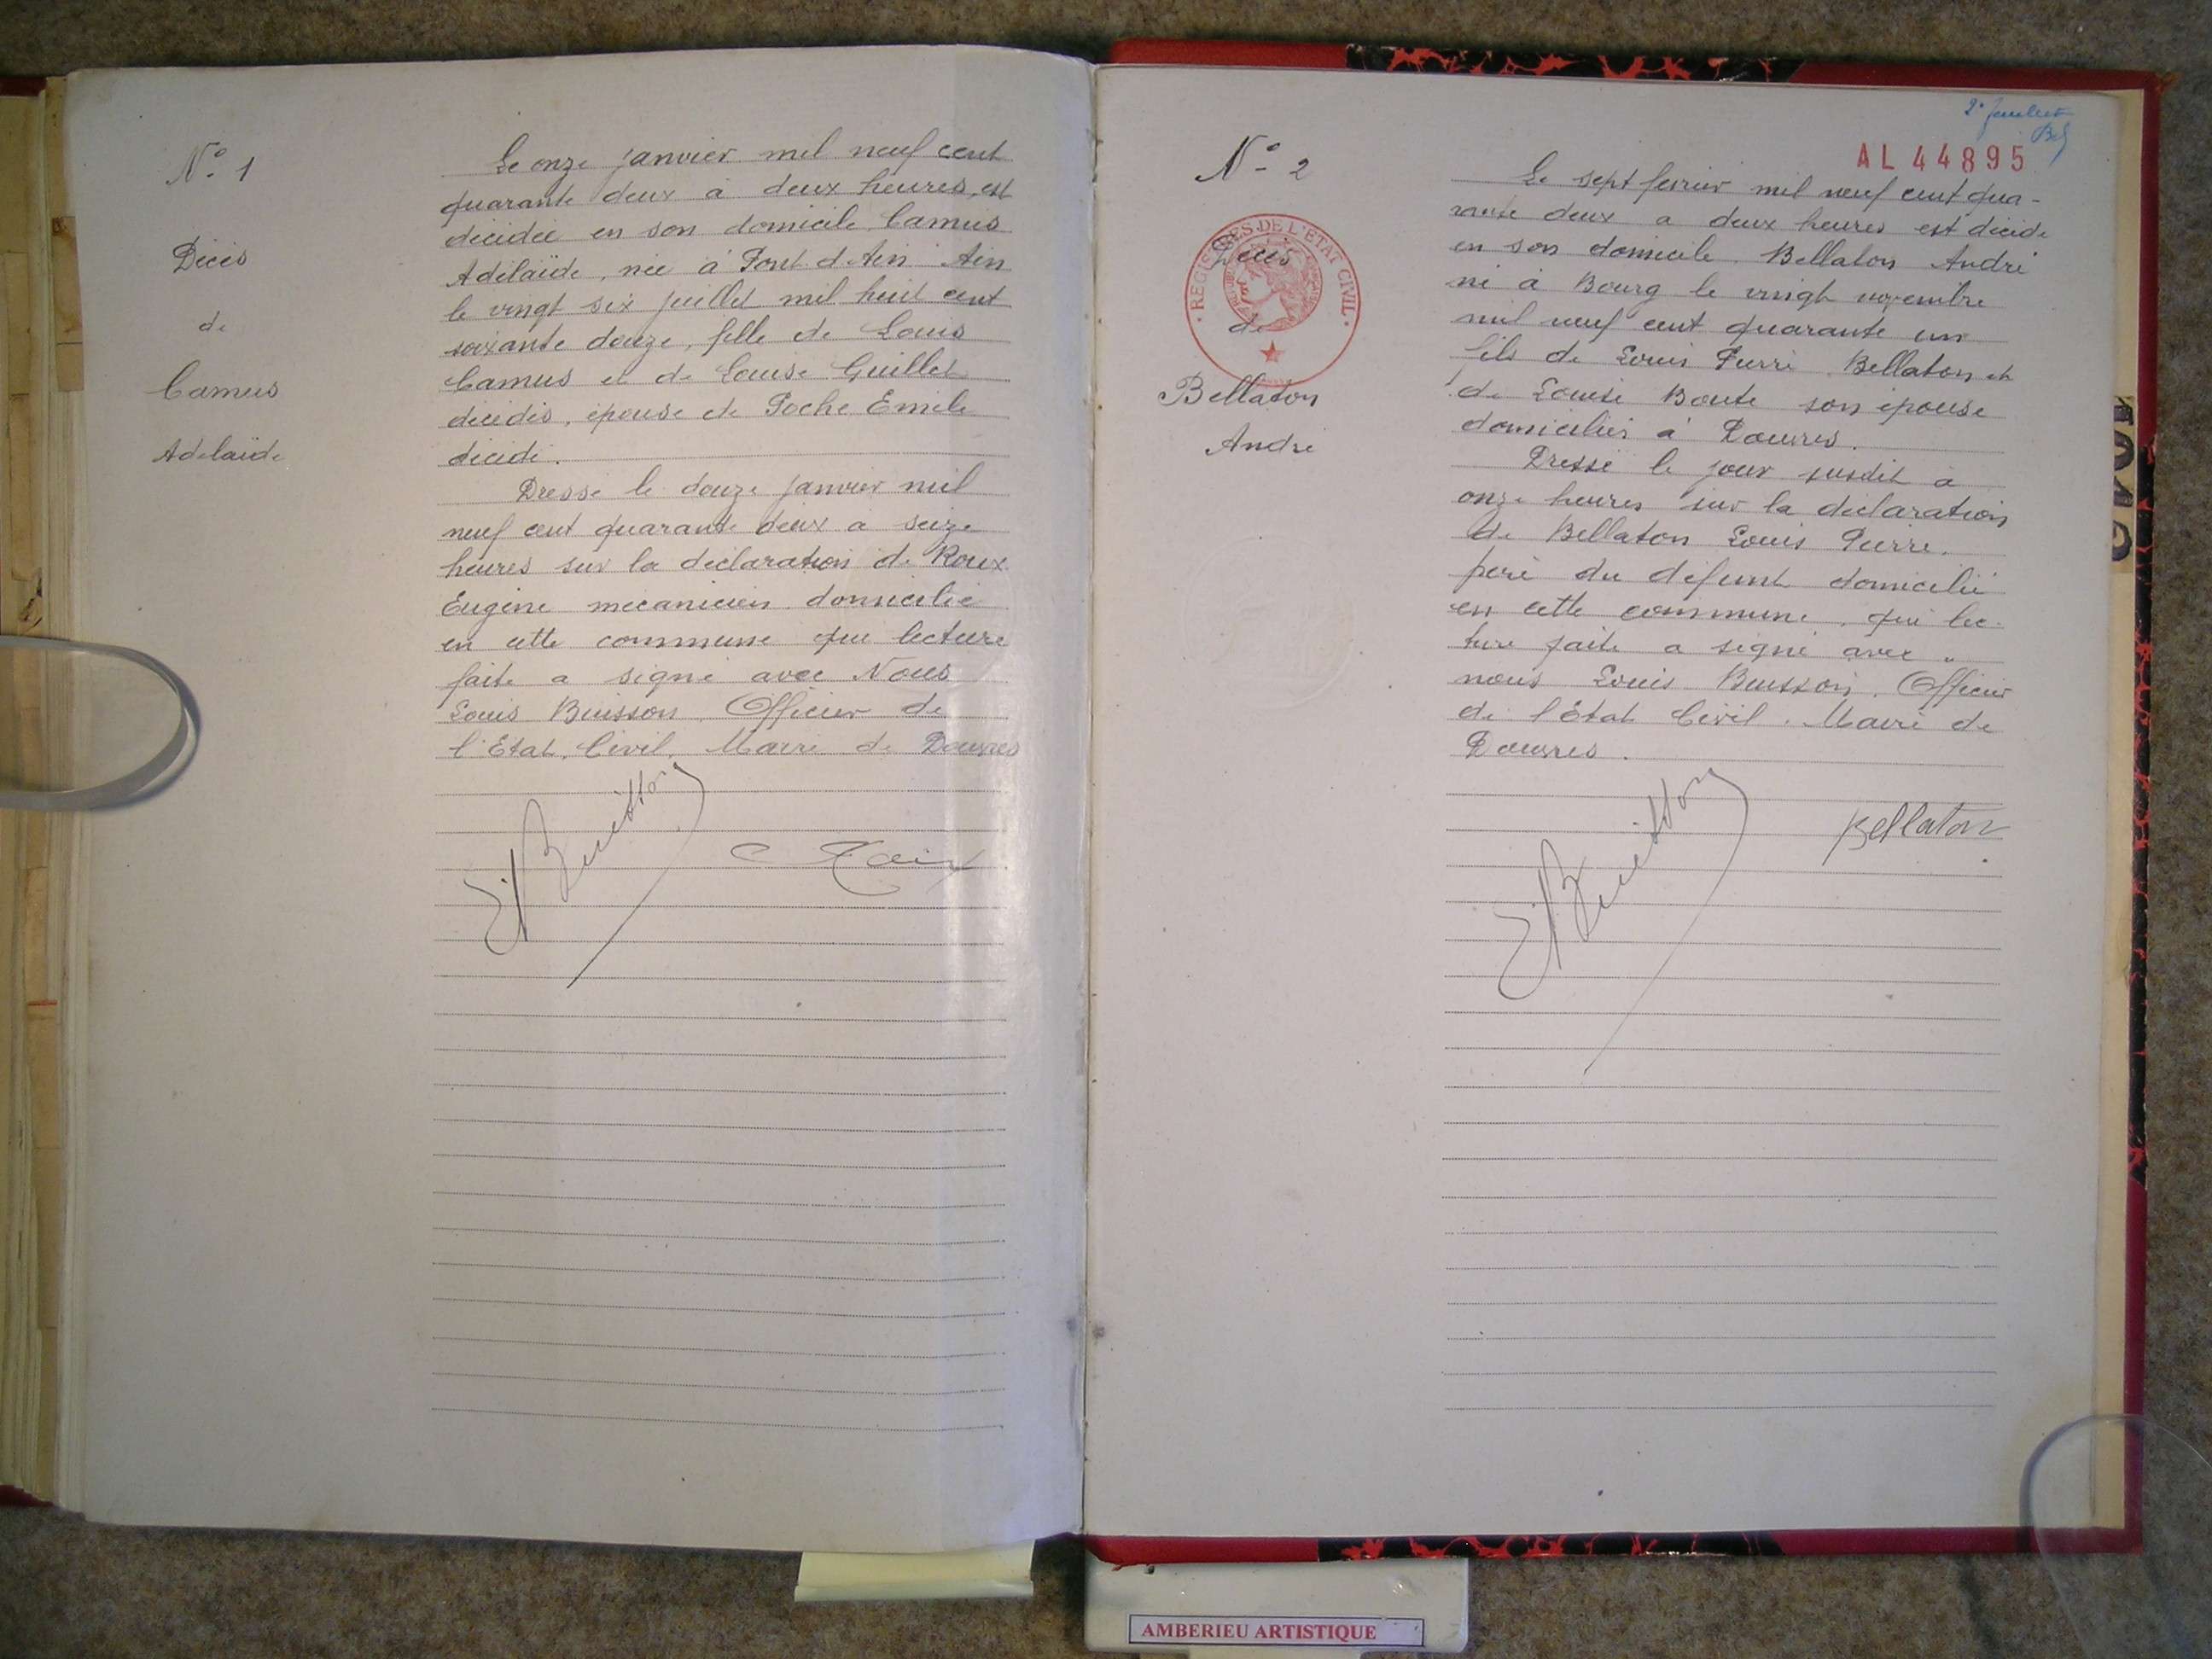 N° 1
Décès
de
Camus
Adelaïde
Le onze janvier mil neuf cent
quarante deux à deux heures, est
décédée en son domicile, Camus
Adélaïde, née à Pont d'Ain Ain
le vingt six juillet mil huit cent
soixante douze, fille de Louis
Camus et de Louise Guillet
décédés, épouse de Poche Emile
décédé.
Dressé le douze janvier mil
neuf cent quarante deux à seize
heures sur la déclaration de Roux
Eugène mécanicien domicilié
en cette commune qui lecture
faite a signé avec Nous
Louis Buisson, Officier de
l'Etat Civil, Maire de Douvres
Ls Buisson
AL 44895
N° 2
REGISTRES DE L'ETAT CIVIL
Décès
de
Bellaton
André
Le sept fevrier mil neuf cent qua-
rante deux a deux heures est décédé
en son domicile, Bellaton André
né à Bourg le vingt novembre
mil neuf cent quarante un
fils de Louis Pierre Bellaton et
de Louise Boute son épouse
domiciliés à Douvres.
Dressé le jour susdit à
onze heures sur la déclaration
de Bellaton Louis Pierre,
père du défunt domicilié
en cette commune, qui lec-
ture faite a signé avec
nous Louis Buisson, Officier
de l'Etat Civil, Maire de
Douvres.
Bellaton
Ls Buisson
AMBERIEU ARTISTIQUE